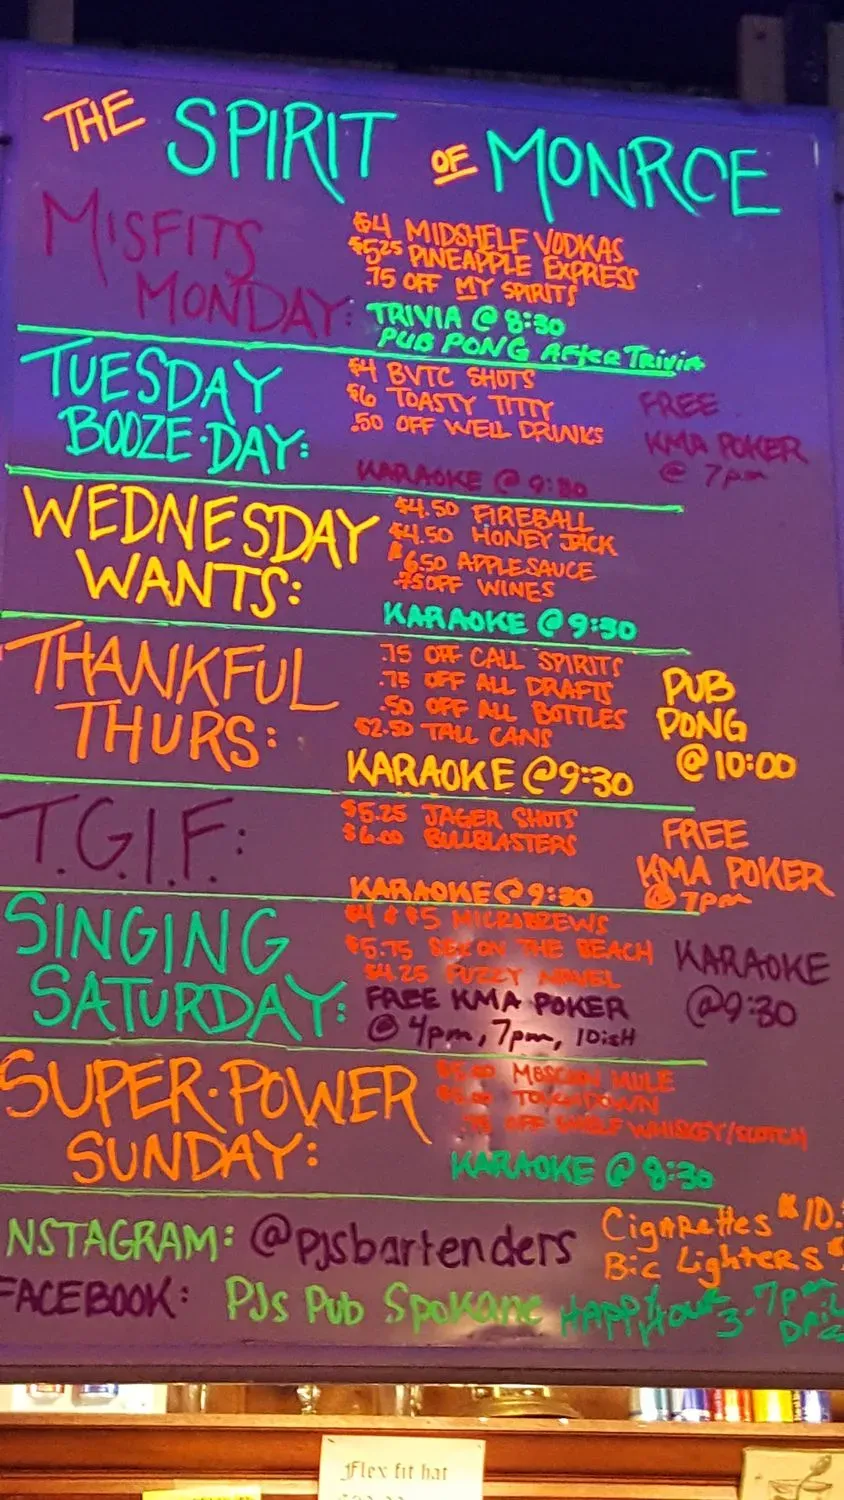 THE SPIRIT OF MONROE
MISFITS MONDAY:
$4 MIDSHELF VODKAS
$5.25 PINEAPPLE EXPRESS
.75 OFF MY SPIRITS
TRIVIA @ 8:30
PUB PONG AFTER TRIVIA
TUESDAY
BOOZE·DAY:
$4 BVTC SHOTS
$6 TOASTY TITTY
.50 OFF WELL DRINKS
KARAOKE @ 9:30
FREE
KMA POKER
@ 7pm
WEDNESDAY
WANTS:
$4.50 FIREBALL
$4.50 HONEY JACK
$6.50 APPLESAUCE
.75 OFF WINES
KARAOKE @ 9:30
THANKFUL
THURS:
.75 OFF CALL SPIRITS
.75 OFF ALL DRAFTS
.50 OFF ALL BOTTLES
$2.50 TALL CANS
KARAOKE @ 9:30
PUB
PONG
@ 10:00
T.G.I.F.:
$5.25 JAGER SHOTS
$6.00 BULLBLASTERS
KARAOKE @ 9:30
FREE
KMA POKER
@ 7pm
SINGING
SATURDAY:
$4 & $5 MICROBREWS
$5.75 SEX ON THE BEACH
$4.25 FUZZY NAVEL
FREE KMA POKER
@ 4pm, 7pm, 10ish
KARAOKE
@9:30
SUPER·POWER
SUNDAY:
MOSCOW MULE
TOUCHDOWN
OFF SHELF WHISKEY/SCOTCH
KARAOKE @ 8:30
NSTAGRAM: @pjsbartenders
FACEBOOK: PJs Pub Spokane
Cigarettes $10.
Bic Lighters $
HAPPY HOUR 3-7pm
Flex fit hat